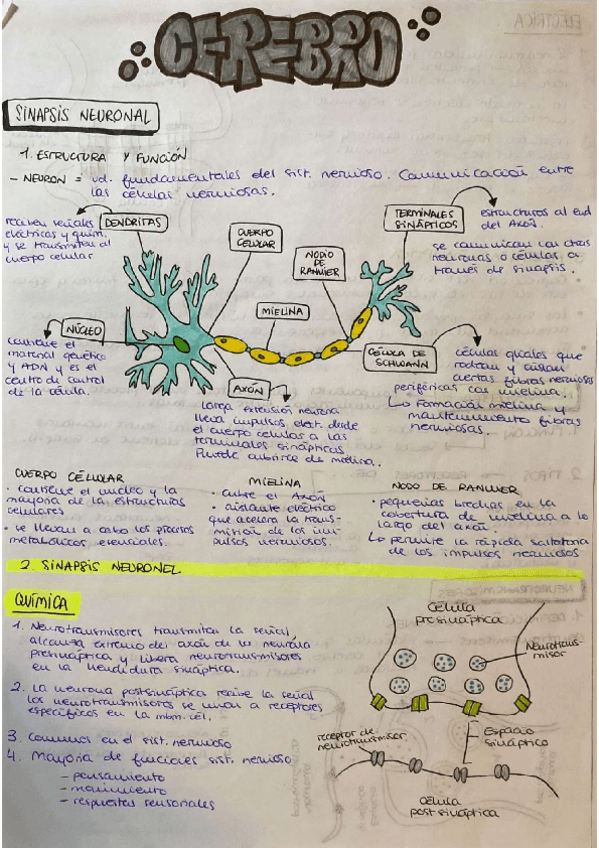 CEREBRO
SINAPSIS NEURONAL
1. ESTRUCTURA Y FUNCIÓN
– NEURON = ud. fundamentales del sist. nervioso. Comunicación entre
las células nerviosas.
DENDRITAS
reciben señales
eléctricas y quím.
y se transmiten al
cuerpo celular
CUERPO
CELULAR
NODIO
DE
RANVIER
TERMINALES
SINÁPTICOS
estructuras al end
del Axón.
se comunican con otras
neuronas o células a
través de sinapsis.
MIELINA
NÚCLEO
contiene el
material genético
y ADN y es el
centro de control
de la célula.
AXÓN
larga extensión neurona
lleva impulsos elect. desde
el cuerpo celular a las
terminales sinápticas
Puede cubrirse de mielina.
CÉLULA DE
SCHWANN
células gliales que
rodean y aislan
ciertas fibras nerviosas
periféricas con mielina.
↳ Formación mielina y
mantenimiento fibras
nerviosas.
CUERPO CÉLULAR
• contiene el nucleo y la
mayoría de la estructuras
celulares
• se llevan a cabo los procesos
metabólicos esenciales.
MIELINA
• cubre el AXÓN
• aislante eléctrico
que acelera la trans-
misión de los im-
pulsos nerviosos.
NODO DE RANVIER
• pequeñas brechas en la
cobertura de mielina a lo
largo del axón
↳ permite la rápida saltatoria
de los impulsos nerviosos
2. SINAPSIS NEURONEL
QUÍMICA
1. Neurotransmisores transmiten la señal,
alcanza extremo del axón de la neurona
presináptica y libera neurotransmisores
en la hendidura sináptica.
2. La neurona postsináptica recibe la señal
los neurotransmisores se unen a receptores
específicos en la mbm. cél.
3 Comunes en el sist. nervioso
4. Mayoría de funciones sist. nervioso
– pensamiento
– movimiento
– respuestas sensoriales
Célula
presináptica
Neurotrans-
misor
receptor de
neurotransmisor
Espacio
sináptico
célula
postsináptica